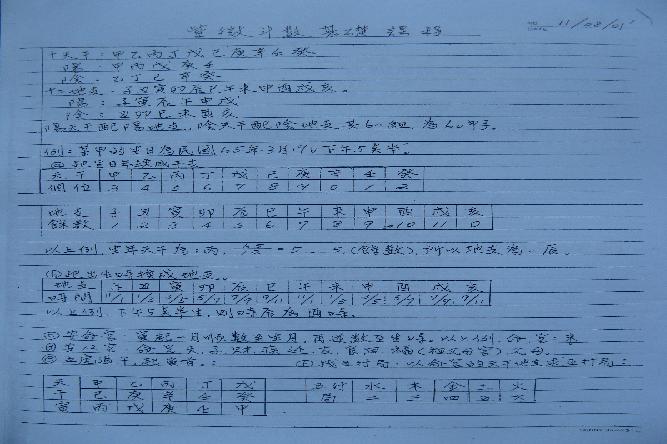 紫微斗數基礎課程
11/28/05
十天干:甲乙丙丁戊己庚辛壬癸
陽:甲丙戊庚壬
陰:乙丁己辛癸
十二地支:子丑寅卯辰巳午未申酉戌亥。
陽:子寅辰午申戌
陰:丑卯巳未酉亥
陽天干配陽地支,陰天干配陰地支,共60組,為60甲子。
例:某甲的生日為民國65年3月 下午5點半。
把生日年換成干支
天干 甲 乙 丙 丁 戊 己 庚 辛 壬 癸
個位 3 4 5 6 7 8 9 0 1 2
地支 子 丑 寅 卯 辰 巳 午 未 申 酉 戌 亥
餘數 1 2 3 4 5 6 7 8 9 10 11 0
以上例,生年天干為:丙, = 5 … 5 (餘數),所以地支為:辰。
把出生時換成地支。
地支 子 丑 寅 卯 辰 巳 午 未 申 酉 戌 亥
時間
以上例,下午5點半生,則時辰為酉時。
安命宮:寅起一月順數至生月,再逆數至生時。以上例,命宮:未
安12宮:命 兄 夫 子 財 疾 遷 友 官 田 福 (相父母宮) 父母
五虎遁干,起寅首。:
找五行局:以命宮的天干地支找五行局:
天 甲 乙 丙 丁 戊
干 己 庚 辛 壬 癸
寅 丙 戊 庚 壬 甲
五行 水 木 金 土 火
局 二 三 四 五 六